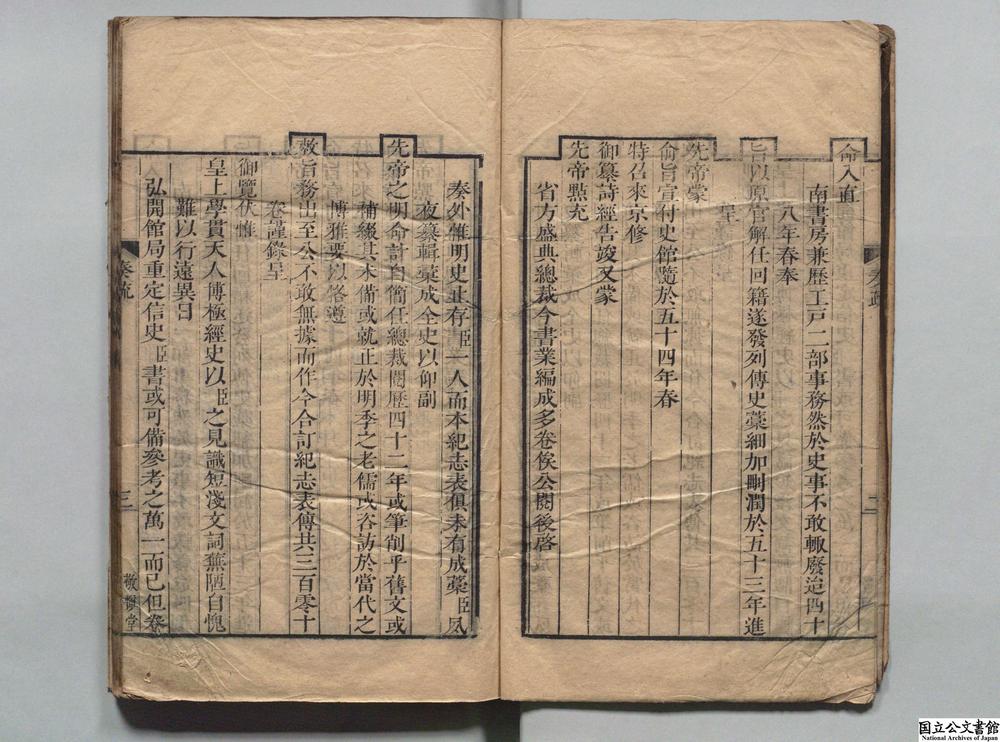 命入直
南書房兼歷工戶二部事務然於史事不敢輒廢迨四十
八年春奉
旨以原官解任回籍遂發列傳史藁細加刪潤於五十三年進
呈
先帝蒙
俞旨宣付史館隨於五十四年春
特召來京修
御纂詩經告竣又蒙
先帝點充
省方盛典總裁今書業編成多卷俟公閱後啓
奏疏
二
奏外惟明史止存臣一人而本紀志表俱未有成藁臣夙
夜纂輯藁成全史以仰副
先帝之明命計自簡任總裁閱歷四十二年或筆削乎舊文或
補綴其未備或就正於明季之老儒或咨訪於當代之
博雅要以恪遵
敕旨務出至公不敢無據而作今合訂紀志表傳共三百零十
卷謹錄呈
御覽伏惟
皇上學貫天人博極經史以臣之見識短淺文詞蕪陋自愧
難以行遠異日
弘開館局重定信史臣書或可備參考之萬一而已但卷
奏疏
三
敬慎堂
国立公文書館
National Archives of Japan